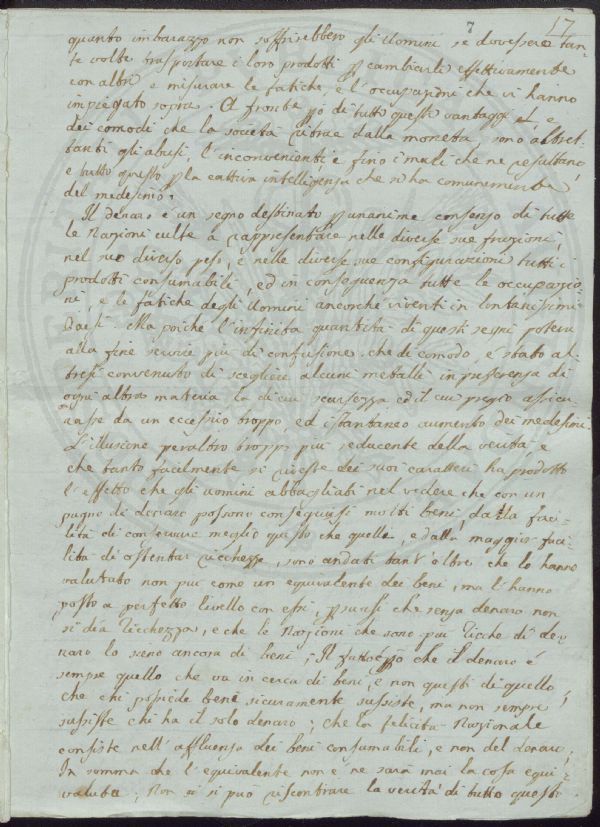 7 17
quanto imbarazzo non soffrirebbero gli Uomini se dovessero tan-
te volte trasportare i loro prodotti p cambiarli effettivamente
con altri, e misurare le fatiche, e l'occupazioni che vi hanno
impiegato sopra. A fronte però di tutti questi vantaggi, e
dei comodi che la società ritrae dalla moneta, sono altret-
tanti gli abusi, l'inconvenienti e fino i mali che ne resultano,
e tutto questo p la cattiva intelligenza che si ha comunemente
del medesimo.
Il denaro è un segno destinato p unanime consenso di tutte
le Nazioni culte a rappresentare nelle diverse sue frazioni,
nel suo diverso peso, e nelle diverse sue configurazioni tutti i
prodotti consumabili, ed in conseguenza tutte le occupazio
ni, e le fatiche degli Uomini ancorchè viventi in lontanissimi
Paesi. Ma poichè l'infinita quantità di questi segni poteva
alla fine riuscire più di confusione che di comodo, è stato al-
tresì convenuto di scegliere alcuni metalli in preferenza di
ogni altra materia, la di cui scarsezza ed il cui pregio assicu-
rasse da un eccessivo troppo, ed istantaneo aumento dei medesimi.
L'illusione peraltro troppo più seducente della verità, e
che tanto facilmente si riveste dei suoi caratteri ha prodotto
l'effetto che gli uomini abbagliati nel vedere che con un
pugno di denaro possono conseguirsi molti beni, dalla faci-
lità di conservare meglio questo che quelli, e dalla maggior faci-
lità di ostentar ricchezze, sono andati tant'oltre, che lo hanno
valutato non più come un equivalente dei beni, ma l'hanno
posto a perfetto livello con essi, psuasi che senza denaro non
si dia Ricchezza, e che le Nazioni che sono più Ricche di de-
naro lo sieno ancora di beni; Il fatto però è che il denaro è
sempre quello che va in cerca di beni, e non questi di quello,
che chi possiede beni sicuramente sussiste, ma non sempre
sussiste chi ha il solo denaro; che la felicità Nazionale
consiste nell'affluenza dei beni consumabili, e non del denaro;
In somma che l'equivalente non è ne sarà mai la cosa equi-
valuta; Non si può riscontrare la verità di tutto questo